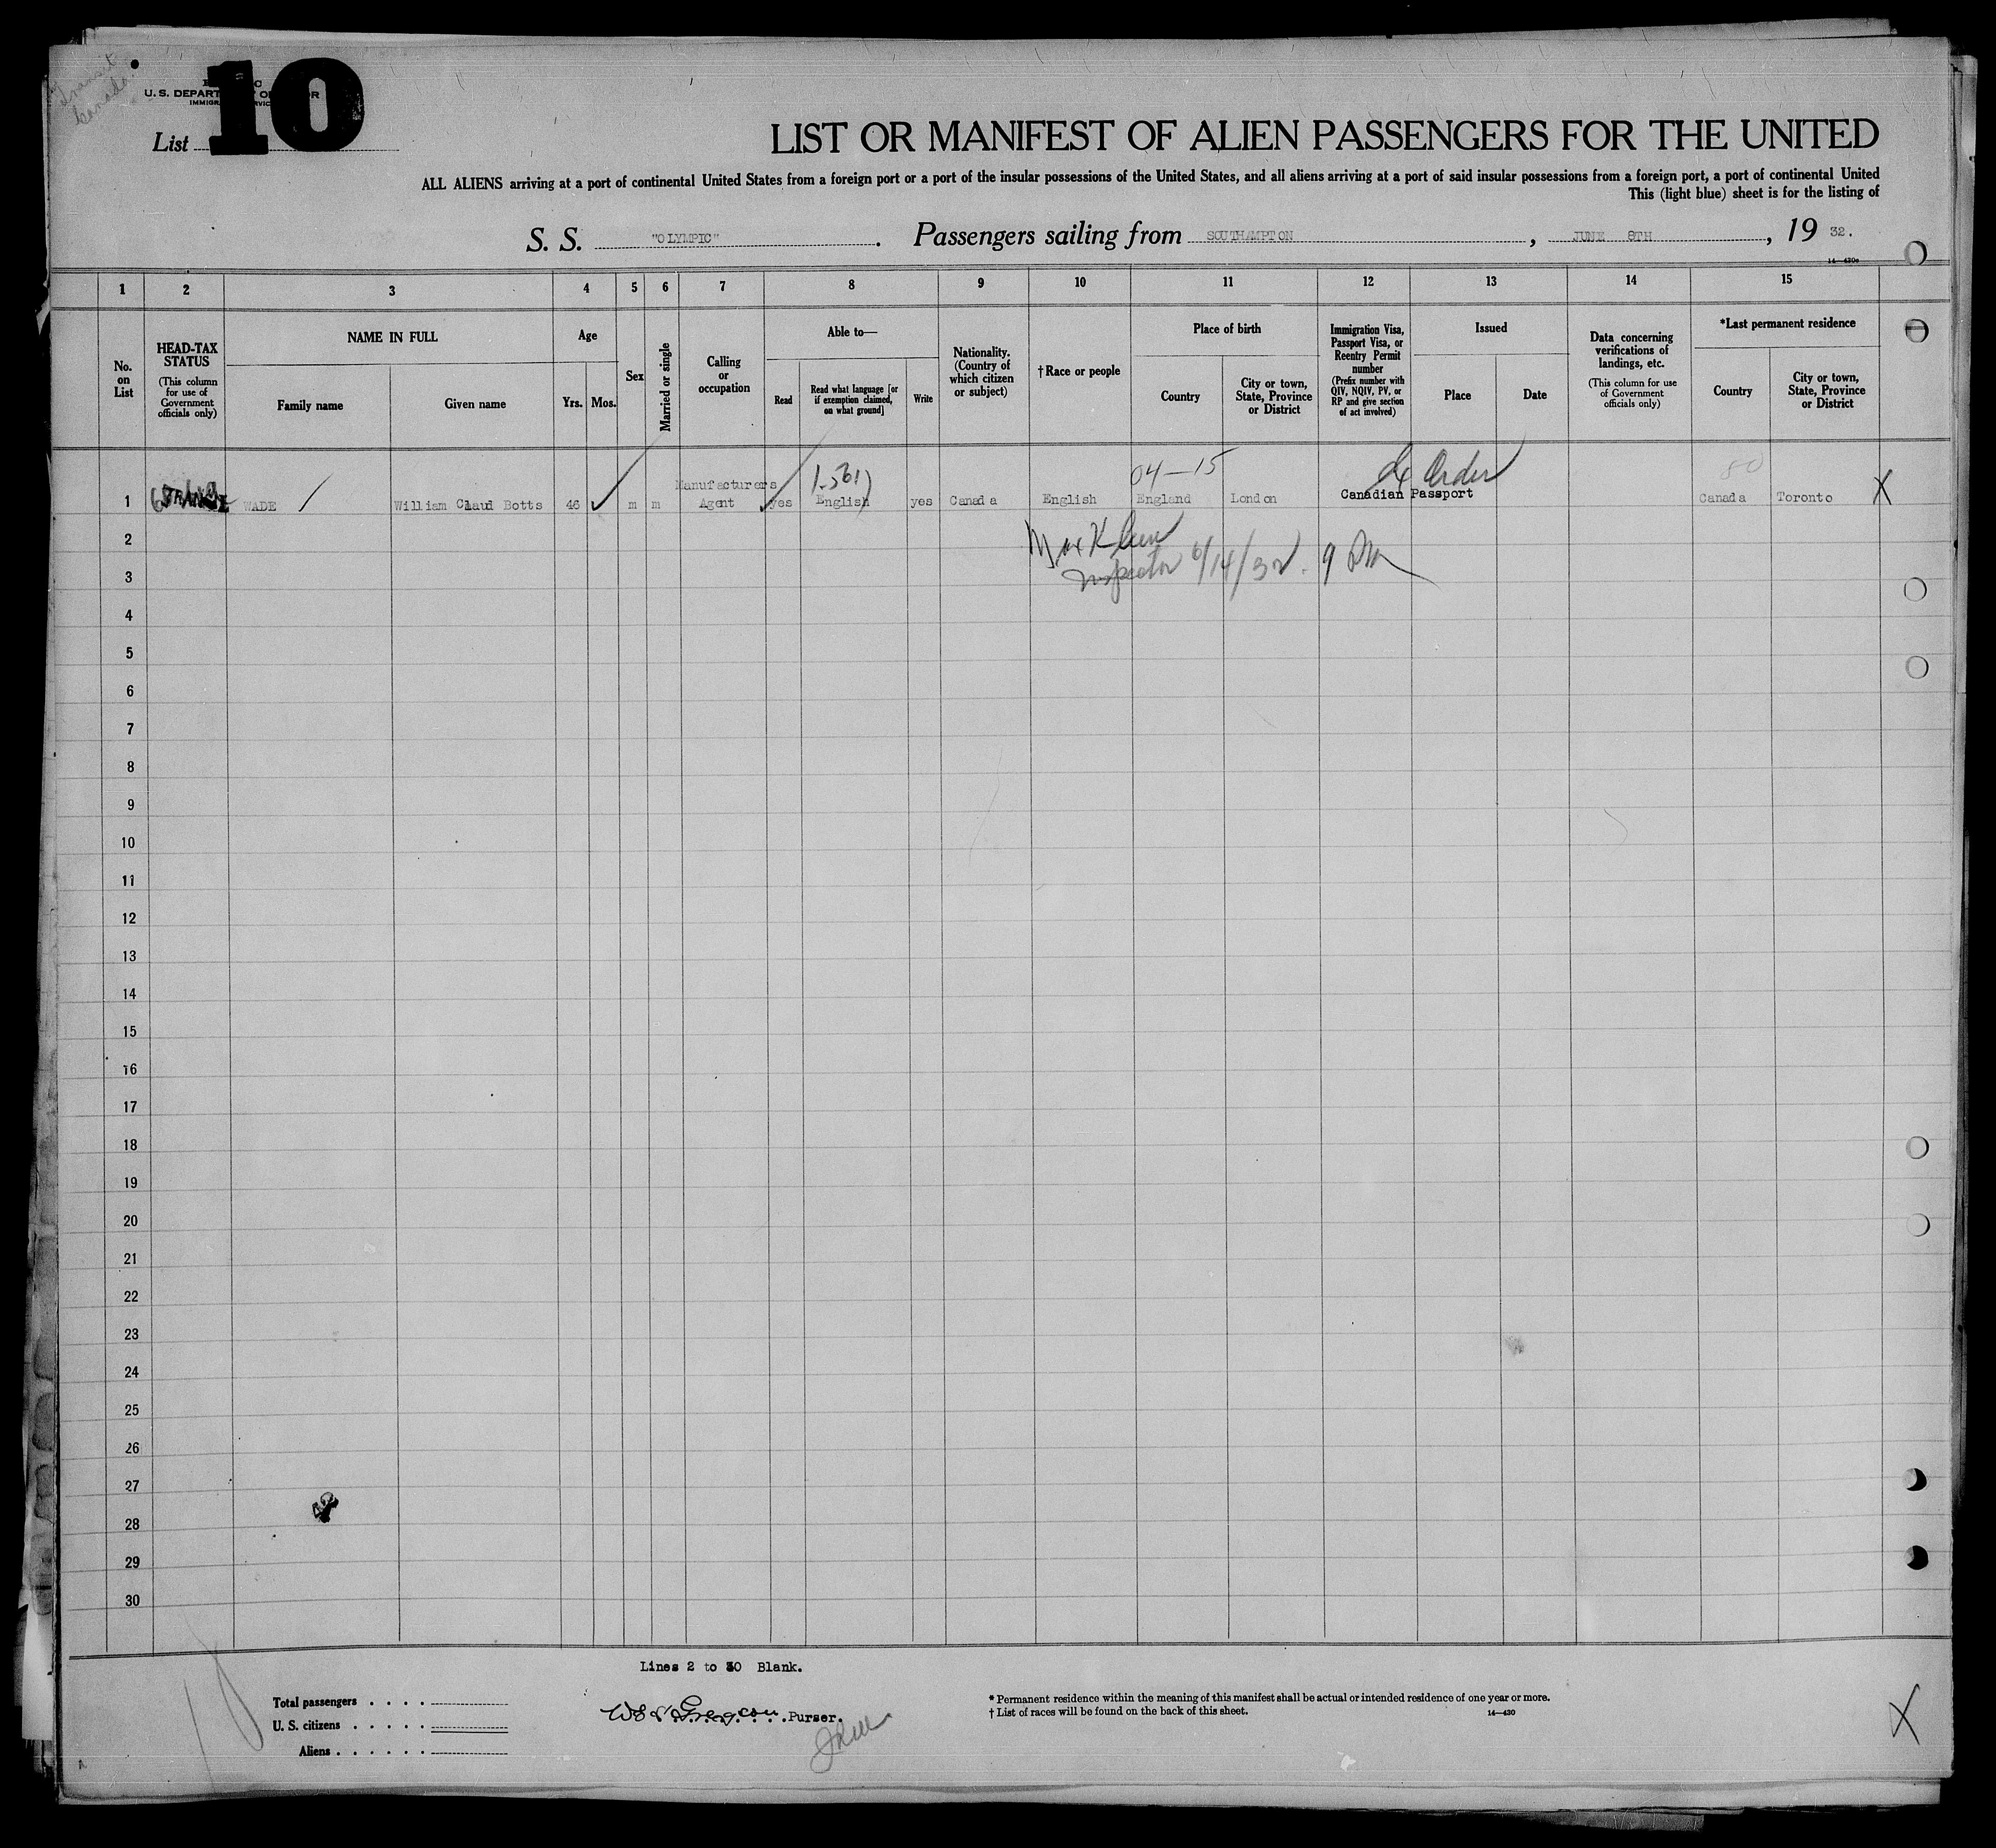 Transit
Canada
10
U. S. DEPART
IMMIGR
List
LIST OR MANIFEST OF ALIEN PASSENGERS FOR THE UNITED
ALL ALIENS arriving at a port of continental United States from a foreign port or a port of the insular possessions of the United States, and all aliens arriving at a port of said insular possessions from a foreign port, a port of continental United
This (light blue) sheet is for the listing of
S. S. "OLYMPIC". Passengers sailing from SOUTHAMPTON, JUNE 8TH, 19 32.
14—430c
1 2 3 4 5 6 7 8 9 10 11 12 13 14 15
No. on List
HEAD-TAX STATUS
(This column for use of Government officials only)
NAME IN FULL
Family name
Given name
Age
Yrs. Mos.
Sex
Married or single
Calling or occupation
Able to—
Read
Read what language [or if exemption claimed, on what ground]
Write
Nationality. (Country of which citizen or subject)
†Race or people
Place of birth
Country
City or town, State, Province or District
Immigration Visa, Passport Visa, or Reentry Permit number
(Prefix number with QIV, NQIV, PV, or RP and give section of act involved)
Issued
Place
Date
Data concerning verifications of landings, etc.
(This column for use of Government officials only)
*Last permanent residence
Country
City or town, State, Province or District
04-15
Order
80
1 WADE William Claud Botts 46 m m Manufacturers Agent yes English yes Canada English England London Canadian Passport Canada Toronto X
2
3 Inspector 6/14/32. 9 PM
4
5
6
7
8
9
10
11
12
13
14
15
16
17
18
19
20
21
22
23
24
25
26
27
28
29
30
Lines 2 to 30 Blank.
Total passengers . . . .
U. S. citizens . . . . .
Aliens . . . . . .
Purser.
* Permanent residence within the meaning of this manifest shall be actual or intended residence of one year or more.
† List of races will be found on the back of this sheet.
14—430
X